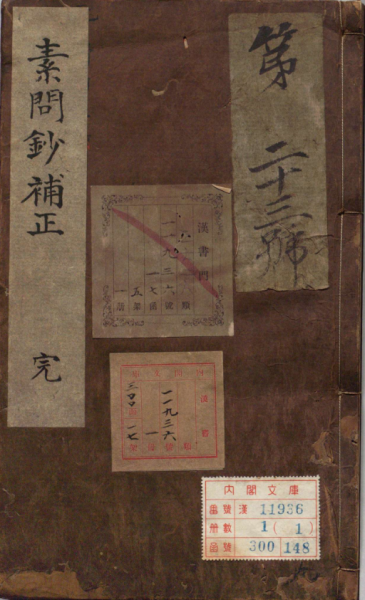 第二十三號
素問鈔補正 完
漢書門
一一九三六號
一七函
五架
一冊
類
一一九三六
一
三〇〇
一七
內閣文庫
番號 漢 11936
冊數 1 ( 1 )
函號 300 148